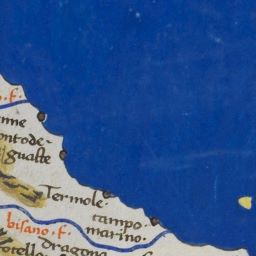 . f.
ontode-
gualte
Termole.
campo.
marino.
bisano . f
dragona